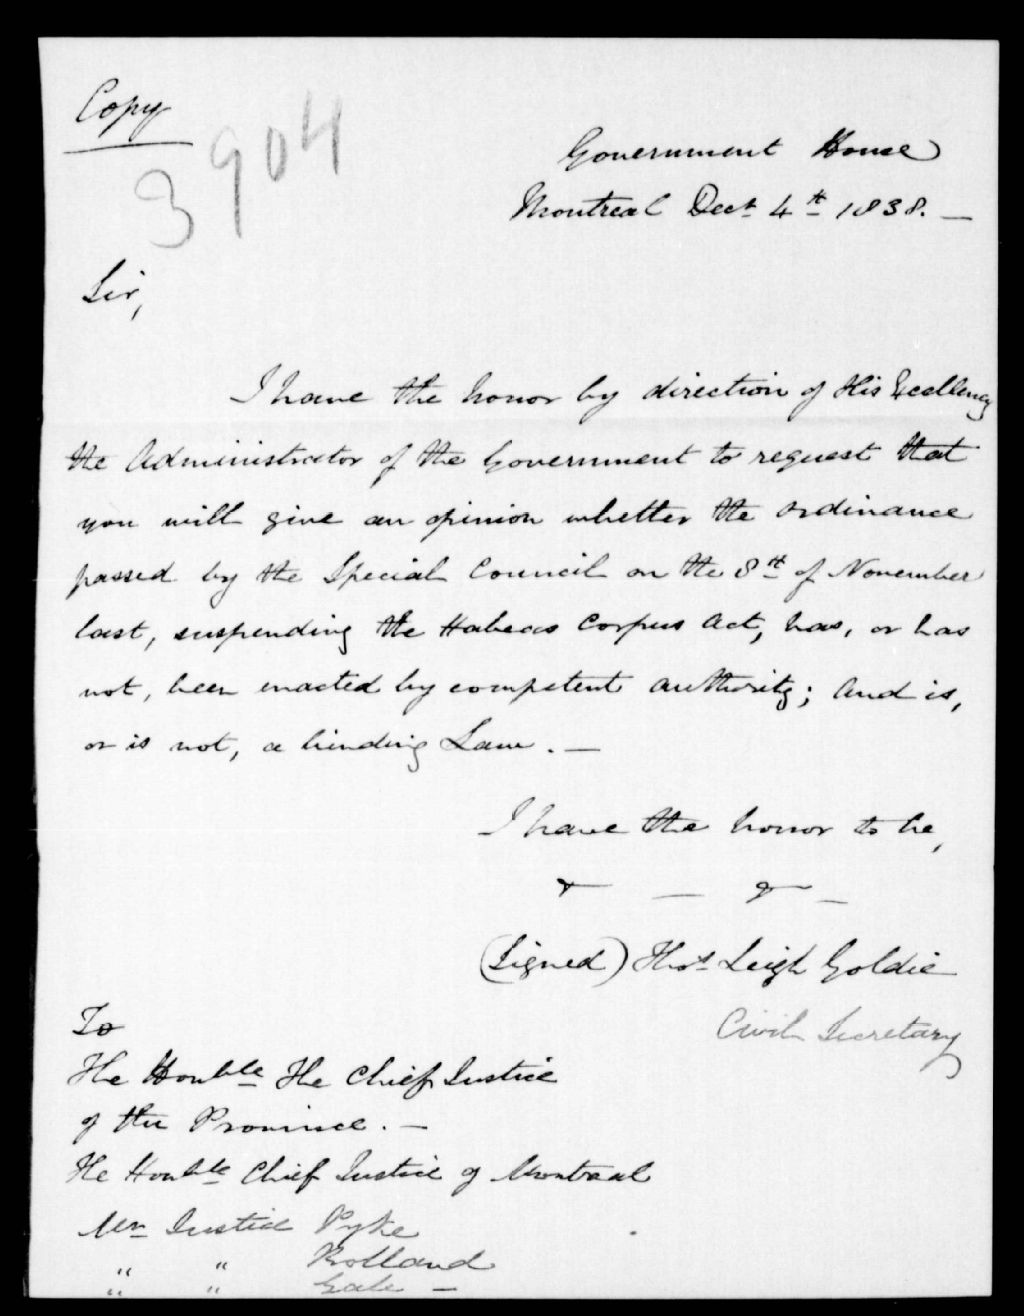 Copy
3904
Government House
Montreal Decr 4th 1838. —
Sir,
I have the honor by direction of His Excellency
the Administrator of the Government to request that
you will give an opinion whether the ordinance
passed by the Special Council on the 8th of November
last, suspending the Habeas Corpus Act, has, or has
not, been enacted by competent authority; and is,
or is not, a binding Law. —
I have the honor to be,
& — & —
(Signed) Thos Leigh Goldie
Civil Secretary
To
The Honble The Chief Justice
of the Province. —
The Honble Chief Justice of Montreal
Mr Justice Pyke
" " Rolland
" " Gale —